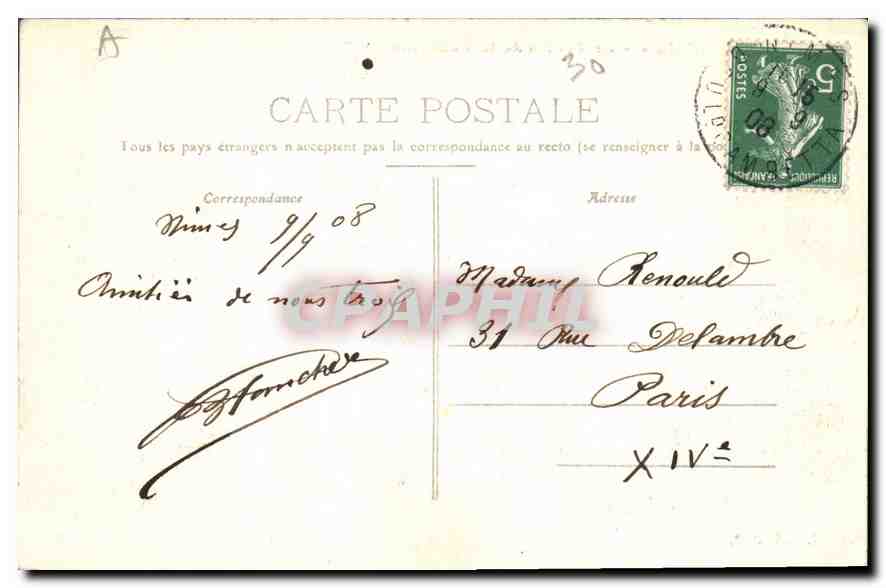 A
30
CARTE POSTALE
Tous les pays étrangers n'acceptent pas la correspondance au recto (se renseigner à la
Correspondance
Nimes 9/9 08
Amitiés de nous trois
Adresse
Madame Renould
31 Rue Delambre
Paris
XIVe
5
POSTES
REPUBLIQUE FRANCAISE
9
08
GAMBETTA
CPAPHIL